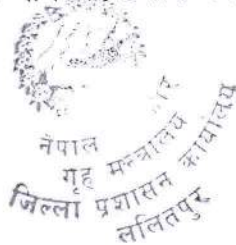 नेपाल
गृह मन्त्रालय
जिल्ला प्रशासन कार्यालय
ललितपुर